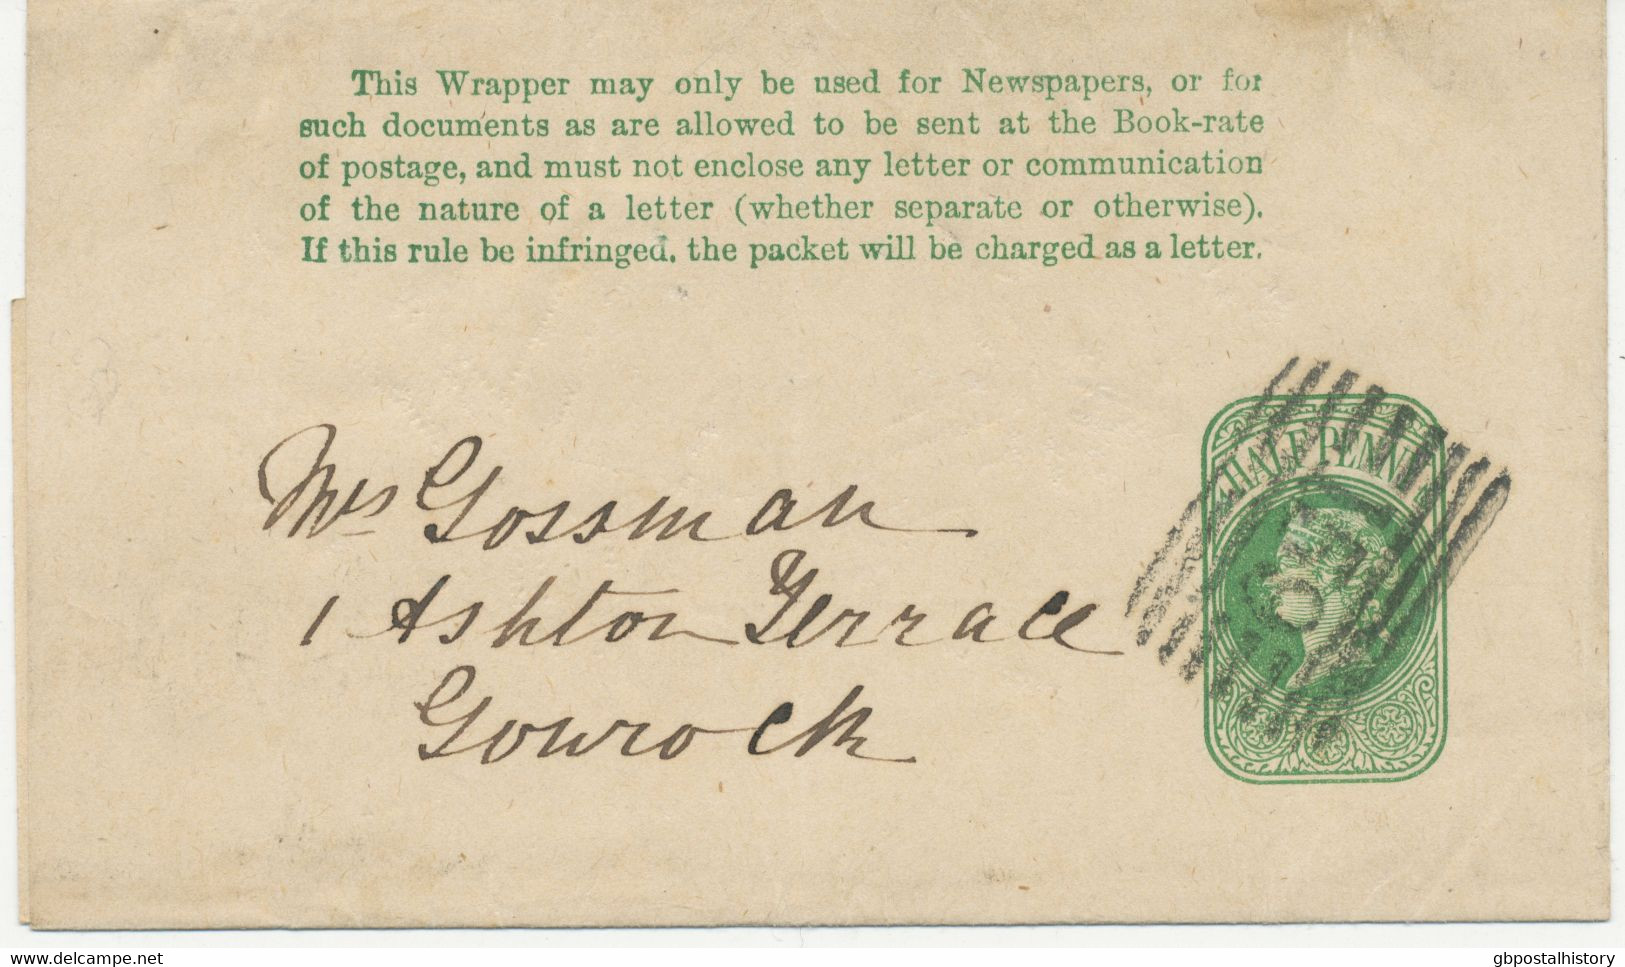 This Wrapper may only be used for Newspapers, or for
such documents as are allowed to be sent at the Book-rate
of postage, and must not enclose any letter or communication
of the nature of a letter (whether separate or otherwise).
If this rule be infringed, the packet will be charged as a letter.
HALFPENNY
Mrs Gossman
1 Ashton Terrace
Gourock
www.delcampe.net
gbpostalhistory